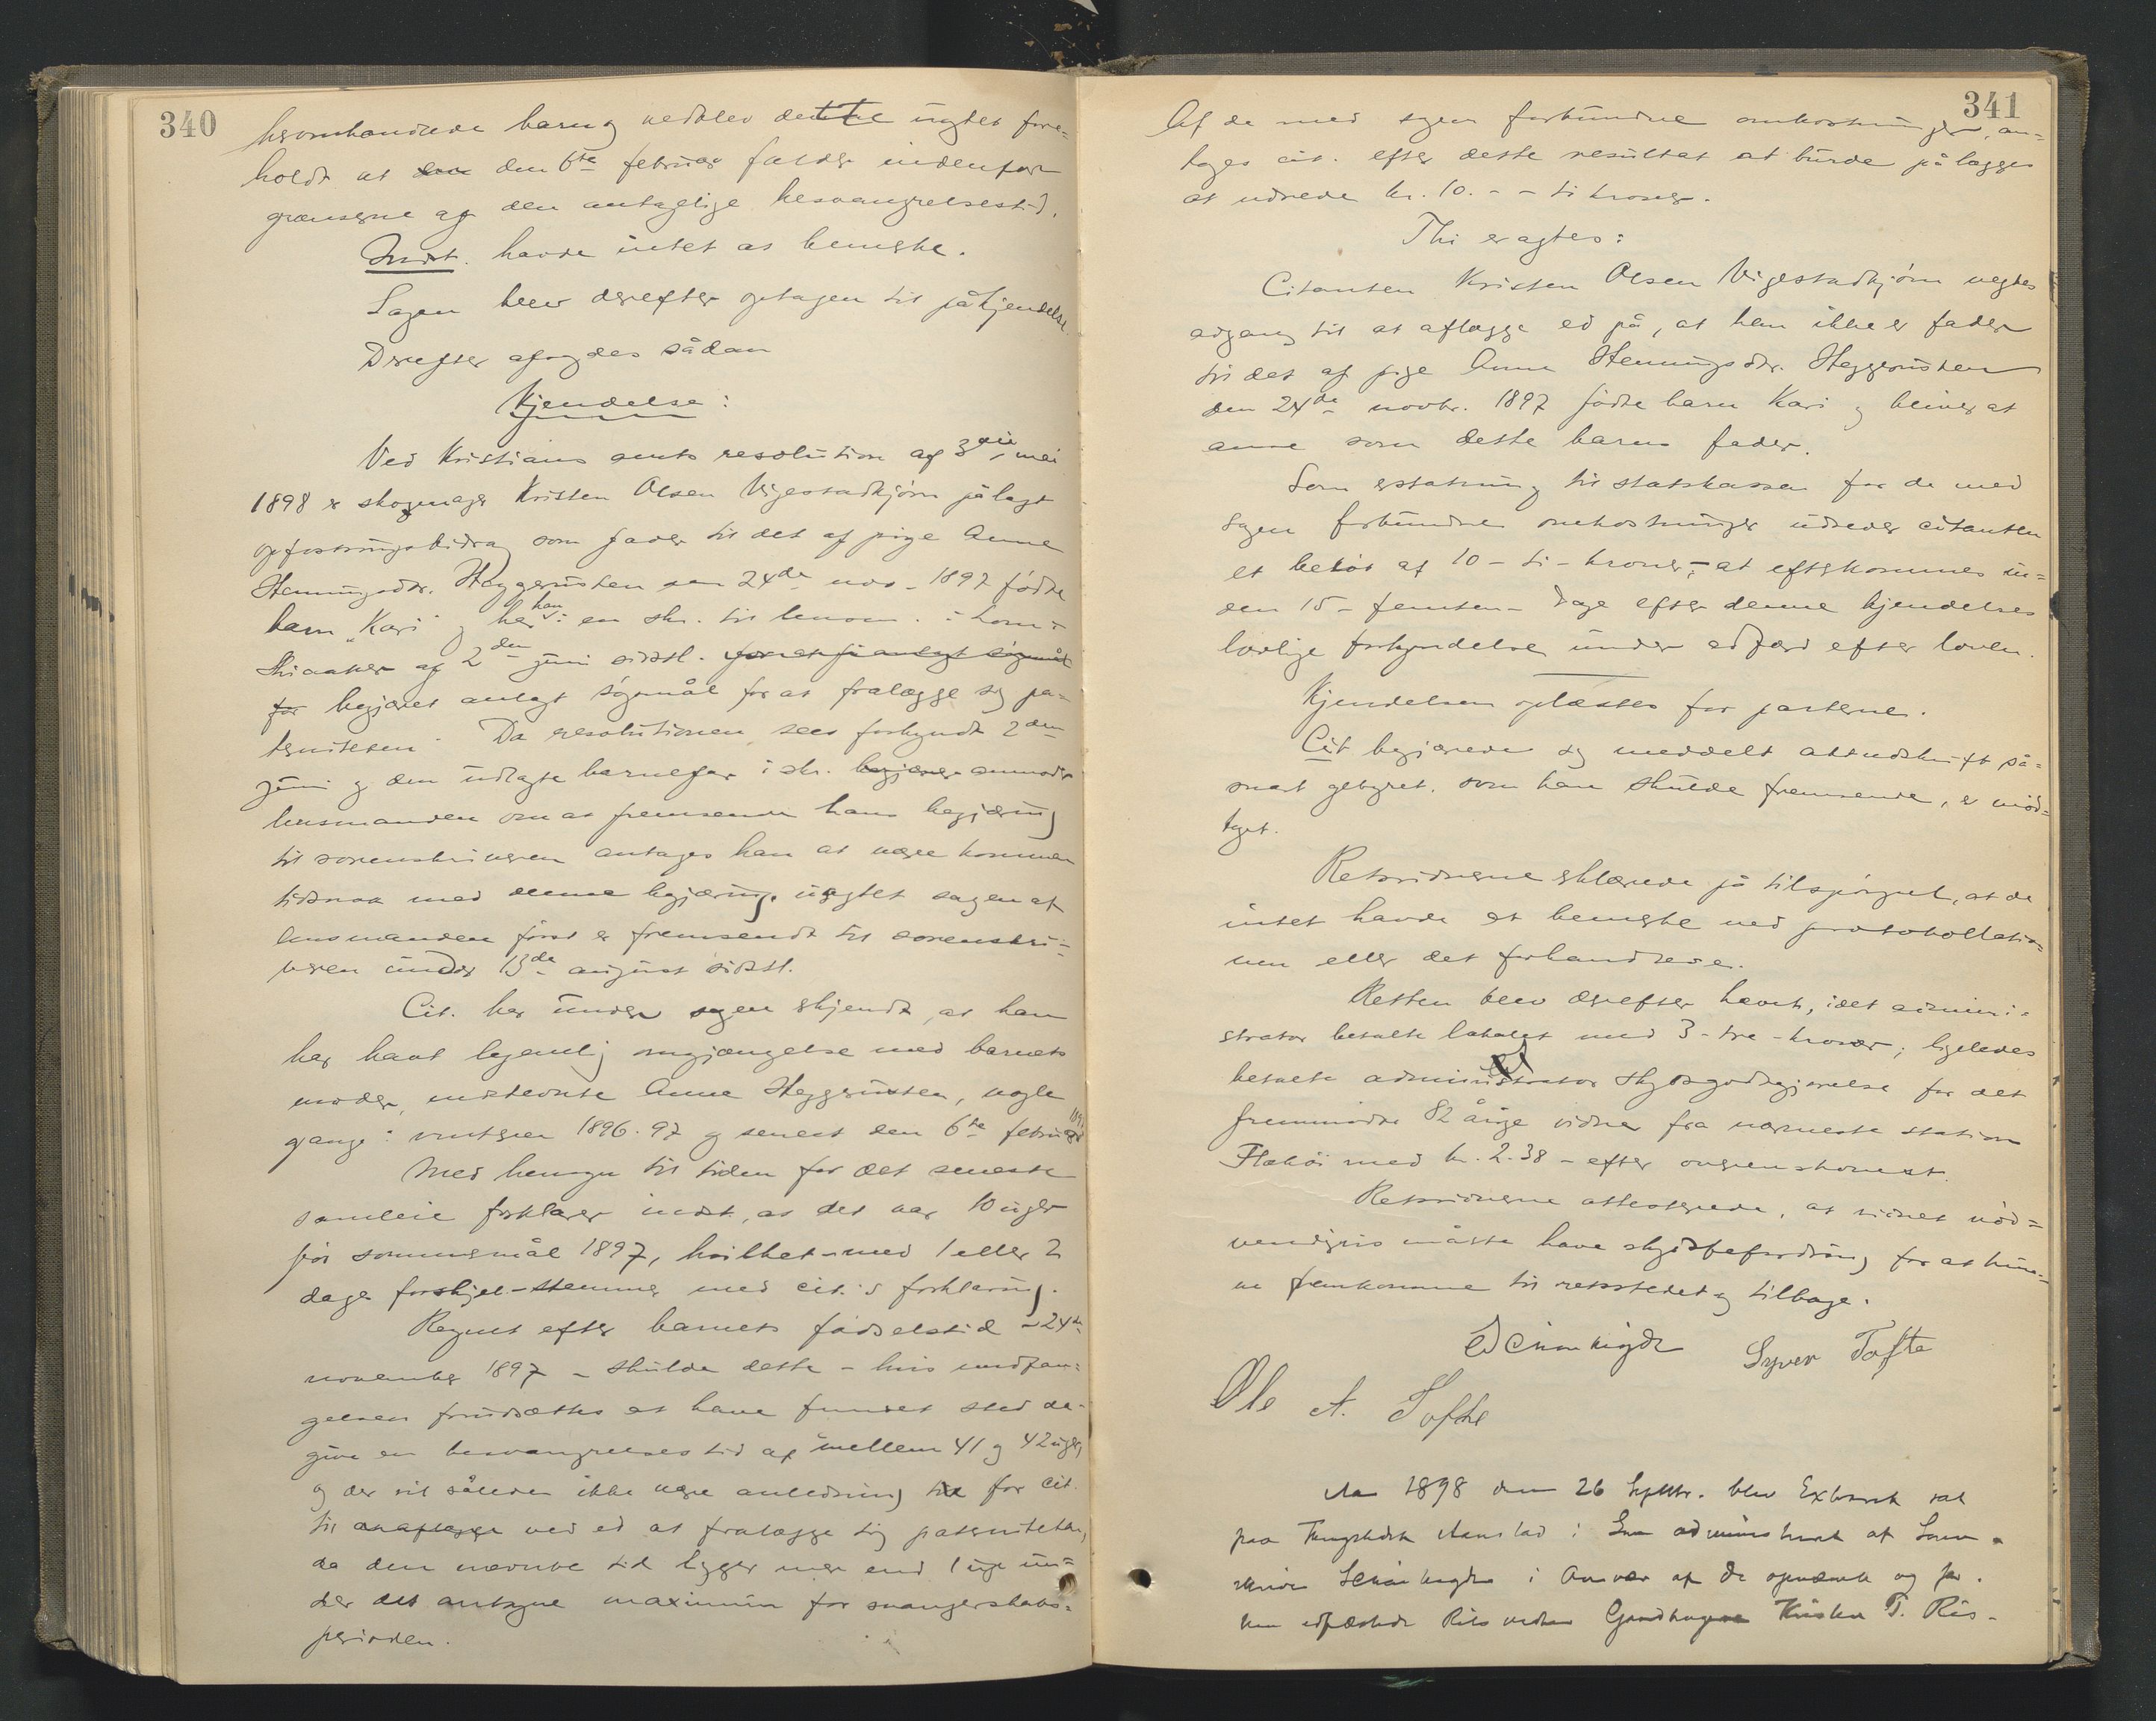 340
heromhandlede barn og vedblev dette uagtet fore=
holdt at den 6te februar falder indenfor
grænserne af den antagelige besvangrelsestid.
Indst. havde intet at bemerke.
Sagen blev derefter optagen til påkjendelse.
Derefter afsagdes sådan
Kjendelse:
Ved Kristians amts resolution af 3die mai
1898 er skogmager Kristen Olsen Vigestadkjørn pålagt
opfostringsbidrag som fader til det af pige Anne
Hemmingsdtr. Heggerusten den 24de nov. 1897 fødte
barn "Kari" og har han i en skr. til lensm. i Lom i
Skiaaker af 2den juni sidstl.
begjæret anlagt søgsmål for at fralægge sig pa=
terniteten. Da resolutionen sees forkyndt 2den
juni og den udlagte barnefar i skr. anmoder
lensmanden om at fremsende hans begjæring
til sorenskriveren antages han at være kommen
tidsnok med denne begjæring, uagtet sagen af
lensmanden først er fremsendt til sorenskri=
veren under 13de august sidstl.
Cit. har under sagen erkjendt, at han
har havt legemlig omgjængelse med barnets
moder, indstevnte Anne Heggerusten, nogle
gange i vinteren 1896-97 og senest den 6te februar 1897.
Med hensyn til tiden for det seneste
samleie forklarer indst., at det var 10 uger
før sommermål 1897, hvilket - med 1 eller 2
dage forskjel - stemmer med cit.'s forklaring.
Regnet efter barnets fødselstid - 24de
november 1897 - skulde dette - hvis undfan=
gelsen forudsættes at have fundet sted da -
give en besvangrelsestid af mellem 41 og 42 uger,
og der vil således ikke være anledning for cit.
til ved ed at fralægge sig paterniteten,
da den nævnte tid ligger mer end 1 uge un=
der det antagne maximum for svangerskabs=
perioden.
341
Af de med sagen forbundne omkostninger, an=
tages cit. efter dette resultat at burde pålægges
at udrede kr. 10. - - ti kroner.
Thi eragtes:
Citanten Kristen Olsen Vigestadkjørn negtes
adgang til at aflægge ed på, at han ikke er fader
til det af pige Anne Hemmingsdtr. Heggerusten
den 24de novbr. 1897 fødte barn Kari og bliver at
anse som dette barns fader.
Som erstatning til statskassen for de med
sagen forbundne omkostninger udreder citanten
et beløb af 10 - ti - kroner; - at efterkommes in=
den 15 - femten - dage efter denne kjendelses
lovlige forkyndelse under adfærd efter loven.
Kjendelsen oplæstes for parterne.
Cit. begjærede sig meddelt aktudskrift så=
snart gebyret, som han skulde fremsende, er mod=
taget.
Retsvidnerne erklærede på tilspørgsel, at de
intet havde at bemerke ved protokollatio=
nen eller det forhandlede.
Retten blev derefter hævet, idet admini=
strator betalte lokalet med 3 - tre - kroner; ligeledes
betalte administrator skydsgodtgjørelse for det
fremmødte 82 årige vidne fra nærmeste station
Flakøi med kr. 2.38 - efter overenskomst.
Retsvidnerne attesterede, at vidnet nød=
vendigvis måtte have skydsbefordring for at kun=
ne fremkomme til retsstedet og tilbage.
Syver Tofte
Ole A. Tofte
Aar 1898 den 26 Septbr. blev Extraret sat
paa Thingstedet Aanstad i administreret af Soren=
skriver i Overvær af de opnævnte og før=
hen edfæstede Retsvidner Gaardbrugere Kristen T. Ris-